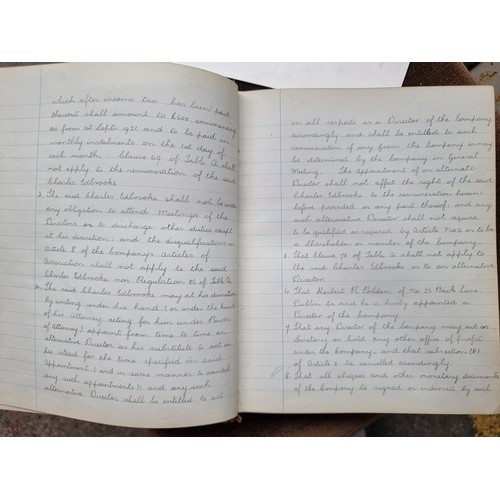 which after income tax has been paid
thereout shall amount to £ commencing
as from 1st Septr. 1921 and to be paid in
monthly instalments on the 1st day of
each month. Clause 69 of Table A shall
not apply to the remuneration of the said
Charles Udbrooke
3. The said Charles Udbrooke shall not be under
any obligation to attend Meetings of the
Directors or to discharge other duties except
at his discretion, and the disqualifications in
Article 8 of the Company's Articles of
Association shall not apply to the said
Charles Udbrooke nor Regulation 86 of Table A.
4. The said Charles Udbrooke may at his discretion
by writing under his hand (or under the hand
of his Attorney acting for him under Power
of Attorney) appoint from time to time an
alternative Director as his substitute to act in
his stead for the time specified in said
appointment (and in same manner to cancel
any such appointments) and any such
alternative Director shall be entitled to act
in all respects as a Director of the Company
accordingly and shall be entitled to such
remuneration if any from the Company as may
be determined by the Company in General
Meeting. The appointment of an alternate
Director shall not affect the right of the said
Charles Udbrooke to the remuneration herein
before provided or any part thereof, and any
such alternative Director shall not require
to be qualified as required by Article No 6 or to be
a shareholder or member of the Company.
5. That Clause 78 of Table A shall not apply to
the said Charles Udbrooke or to an alternative
Director.
6. That Herbert R. of No 20 Back Lane
Dublin be and he is hereby appointed a
Director of the Company.
7. That any Director of the Company may act as
Secretary or hold any other office of profit
under the Company, and that subsection (B)
of Article 8 be cancelled accordingly.
8. That all cheques and other monetary documents
of the Company be signed or endorsed by such